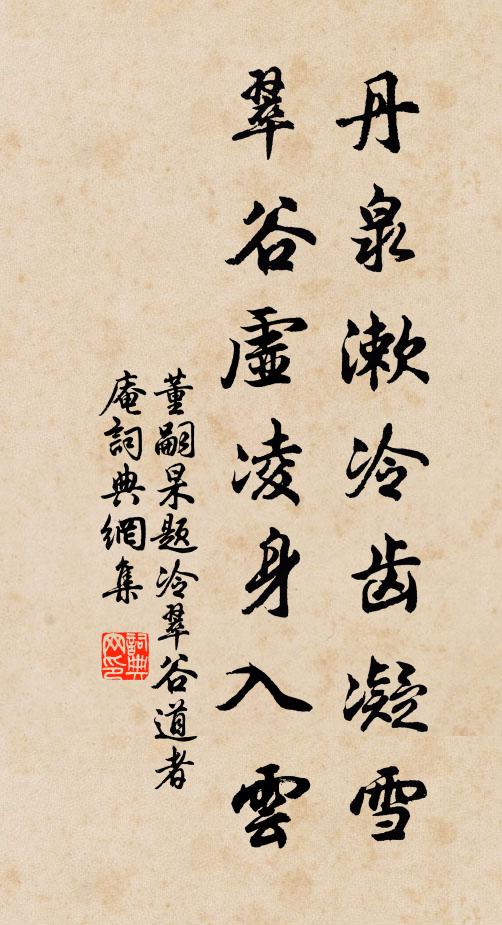 丹泉漱冷齿凝雪
翠谷虛凌身入雲
董嗣杲题冷翠谷道者
庵詞典網集
詞典网印